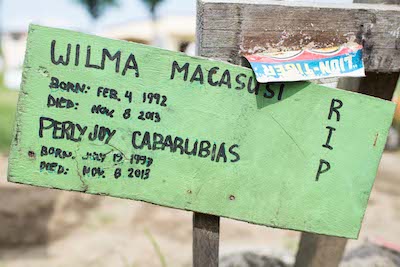 WILMA MACASUSI
BORN: FEB. 4 1992
DIED: NOV. 8 2013
PERLYJOY CABARUBIAS
BORN: JULY 19
DIED: NOV. 8 2013
RIP